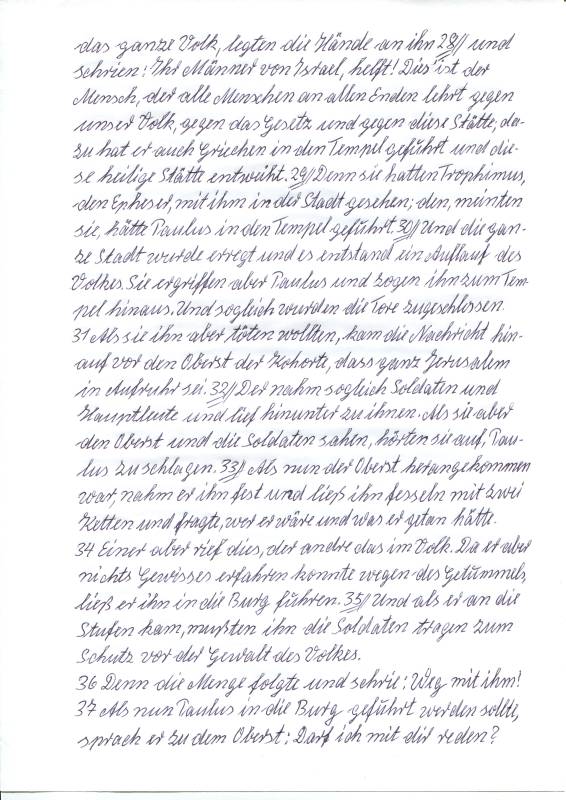 das ganze Volk, legten die Hände an ihn 28// und
schrien: Ihr Männer von Israel, helft! Dies ist der
Mensch, der alle Menschen an allen Enden lehrt gegen
unser Volk, gegen das Gesetz und gegen diese Stätte; da-
zu hat er auch Griechen in den Tempel geführt und die-
se heilige Stätte entweiht. 29// Denn sie hatten Trophimus,
den Epheser, mit ihm in der Stadt gesehen; den, meinten
sie, hätte Paulus in den Tempel geführt. 30// Und die gan-
ze Stadt wurde erregt und es entstand ein Auflauf des
Volkes. Sie ergriffen aber Paulus und zogen ihn zum Tem-
pel hinaus. Und sogleich wurden die Tore zugeschlossen.
31 Als sie ihn aber töten wollten, kam die Nachricht hin-
auf vor den Oberst der Kohorte, dass ganz Jerusalem
in Aufruhr sei. 32// Der nahm sogleich Soldaten und
Hauptleute und lief hinunter zu ihnen. Als sie aber
den Oberst und die Soldaten sahen, hörten sie auf, Pau-
lus zu schlagen. 33// Als nun der Oberst herangekommen
war, nahm er ihn fest und ließ ihn fesseln mit zwei
Ketten und fragte, wer er wäre und was er getan hätte.
34 Einer aber rief dies, der andre das im Volk. Da er aber
nichts Gewisses erfahren konnte wegen des Getümmels,
ließ er ihn in die Burg führen. 35// Und als er an die
Stufen kam, mußten ihn die Soldaten tragen zum
Schutz vor der Gewalt des Volkes.
36 Denn die Menge folgte und schrie: Weg mit ihm!
37 Als nun Paulus in die Burg geführt werden sollte,
sprach er zu dem Oberst: Darf ich mit dir reden?